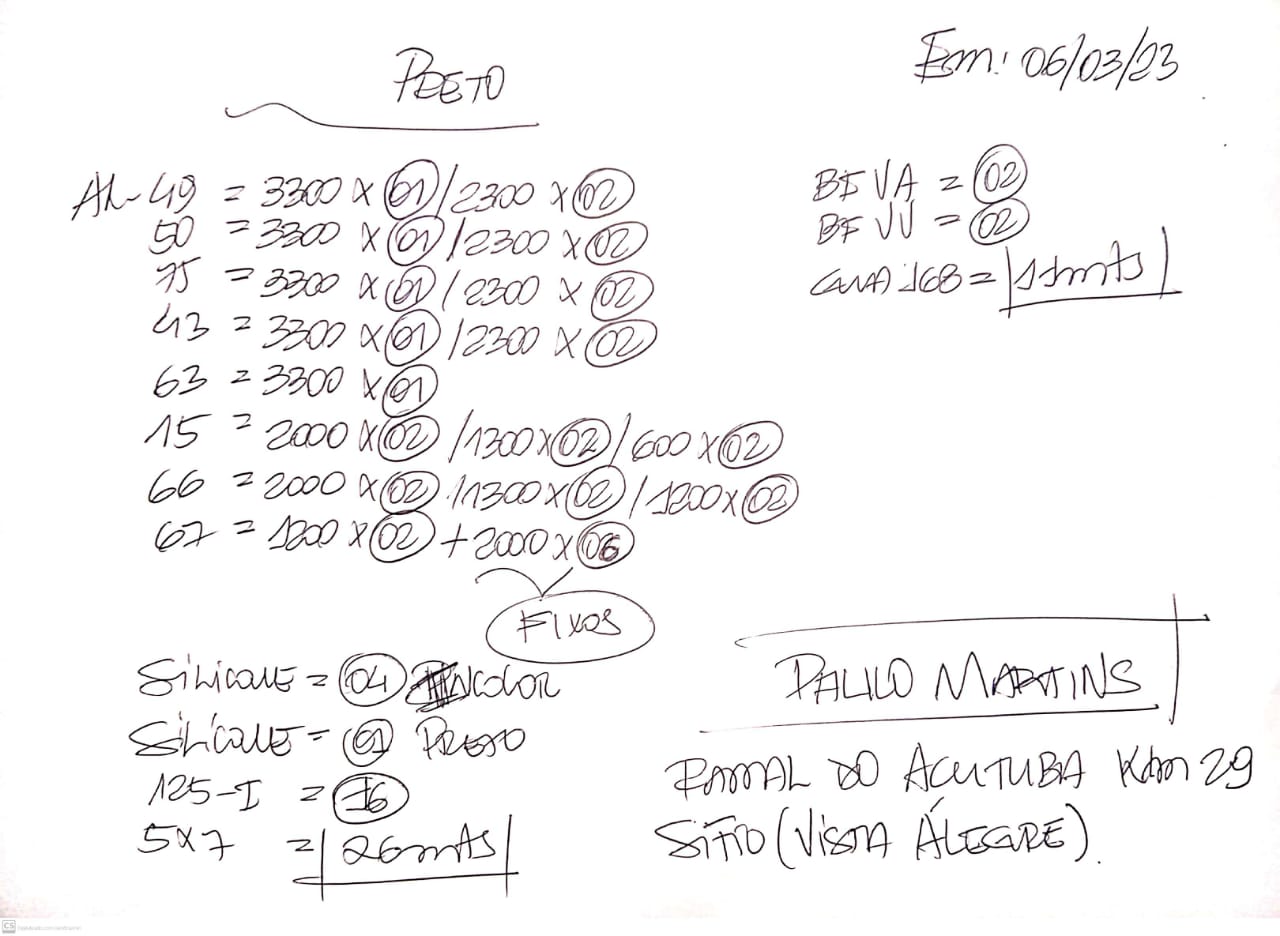 PRETO
Em: 06/03/23
AL-49 = 3300 x 01 / 2300 x 02
50 = 3300 x 01 / 2300 x 02
75 = 3300 x 01 / 2300 x 02
43 = 3300 x 01 / 2300 x 02
63 = 3300 x 01
15 = 2000 x 02 / 1300 x 02 / 600 x 02
66 = 2000 x 02 / 1300 x 02 / 1200 x 02
67 = 1200 x 02 + 2000 x 06
FIXOS
BF VA = 02
BF VV = 02
168 = 11mts
SILICONE = 04 INCOLOR
SILÍCONE = 01 PRETO
125-I = 16
5x7 = 26mts
PAULO MARTINS
RAMAL DO ACUTUBA Km 29
SITIO (VISTA ÁLEGRE).
CS